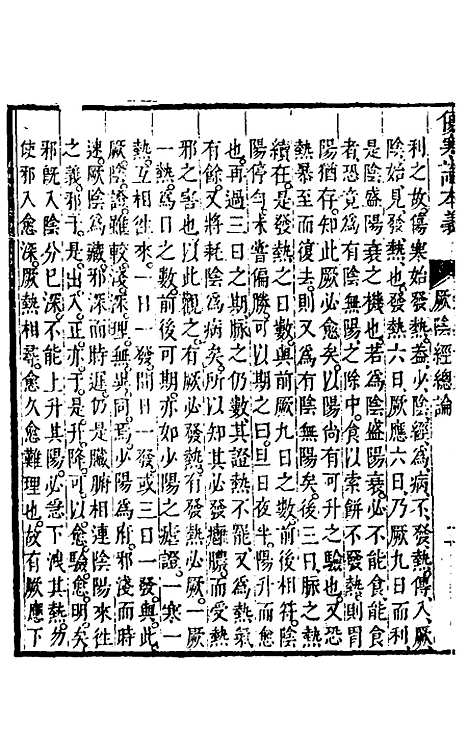 傷寒論本義 厥陰經總論
利之故。傷寒始發熱。蓋少陰經為病不發熱。傳入厥
陰始見發熱也。發熱六日。厥應六日。乃厥九日而利。
是陰盛陽衰之機也。若為陰盛陽衰。必不能食。能食
者。恐竟為有陰無陽之除中。食以索餅不發熱。則胃
陽猶存。知此厥必愈矣。以陽尚有可升之驗也。又恐
熱暴至而復去。則又為有陰無陽矣。後三日脈之熱
續在。是發熱之日數與前厥九日之數前後相符。陰
陽停勻。未嘗偏勝。可以期之曰。旦日夜半。陽升而愈
也。再過三日之期。脈之仍數。其證熱不罷。又為熱氣
有餘。又將耗陰為病矣。所以知其必發癰膿。而受熱
邪之害也。以此觀之。有厥必發熱。有發熱必厥。一厥
一熱。為日之數。前後可期。亦如少陽之瘧證。一寒一
熱。互相往來。一日一發。間日一發。或三日一發。與此
厥陰證雖較淺深。理無與同焉。少陽為府。邪淺而時
速。厥陰為藏。邪深而時遲。仍是臟腑相連陰陽來往
之義。邪于是出入。正亦于是升降。可以愈驗愈明矣。
邪既入陰分已深。不能上升其陽。必急下洩其熱。勿
使邪入愈深。厥熱相尋。愈久愈難理也。故有厥應下